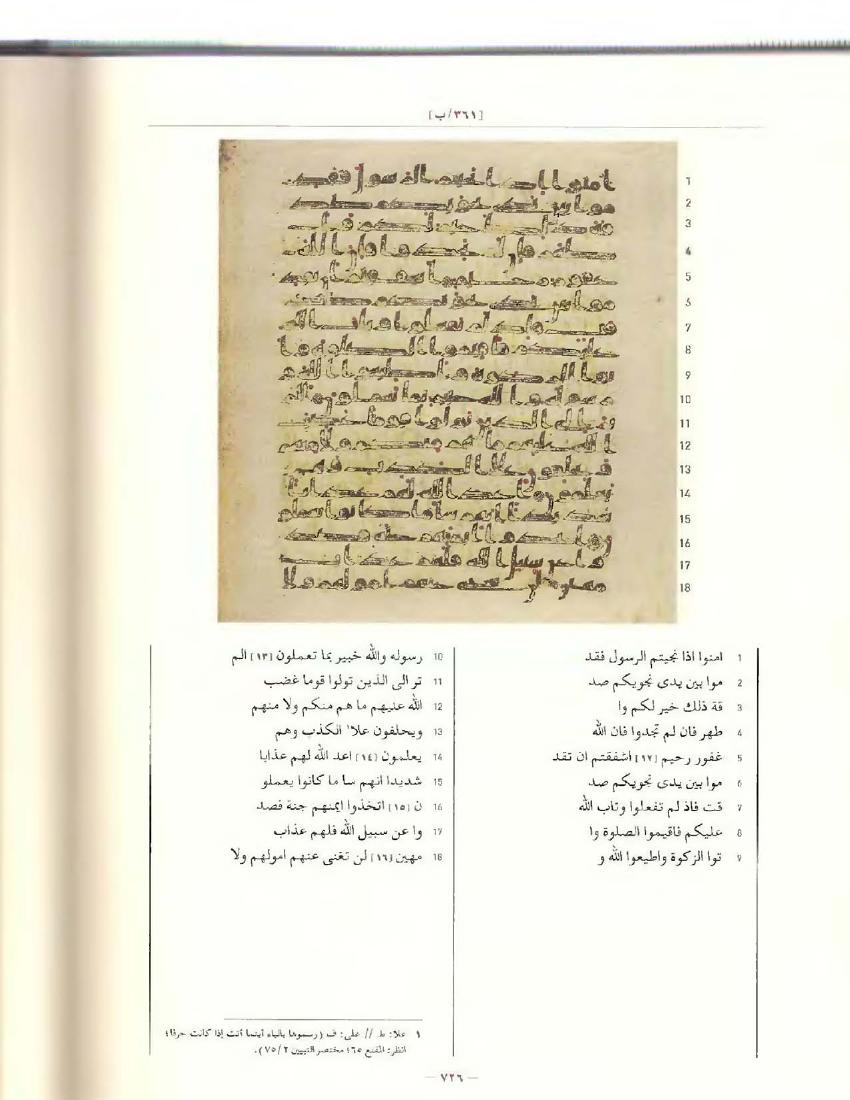 [٣٦١/ب]
1
2
3
4
5
6
7
8
9
10
11
12
13
14
15
16
17
18
1 امنوا اذا نجيتم الرسول فقد
2 موا بين يدى نجويكم صد
3 قة ذلك خير لكم وا
4 طهر فان لم تجدوا فان الله
5 غفور رحيم [١٢] اشفقتم ان تقد
6 موا بين يدى نجويكم صد
7 قت فاذ لم تفعلوا وتاب الله
8 عليكم فاقيموا الصلوة وا
9 توا الزكوة واطيعوا الله و
10 رسوله والله خبير بما تعملون [١٣] الم
11 تر الى الذين تولوا قوما غضب
12 الله عليهم ما هم منكم ولا منهم
13 ويحلفون علا١ الكذب وهم
14 يعلمون [١٤] اعد الله لهم عذابا
15 شديدا انهم سا ما كانوا يعملو
16 ن [١٥] اتخذوا ايمنهم جنة فصد
17 وا عن سبيل الله فلهم عذاب
18 مهين [١٦] لن تغنى عنهم امولهم ولا
١ علا: ط // على: ف (رسموها بالياء أينما أتت إذا كانت حرفا؛
انظر: المقنع ٦٥؛ مختصر التبيين ٧٥/٢).
– ٧٢٦ –